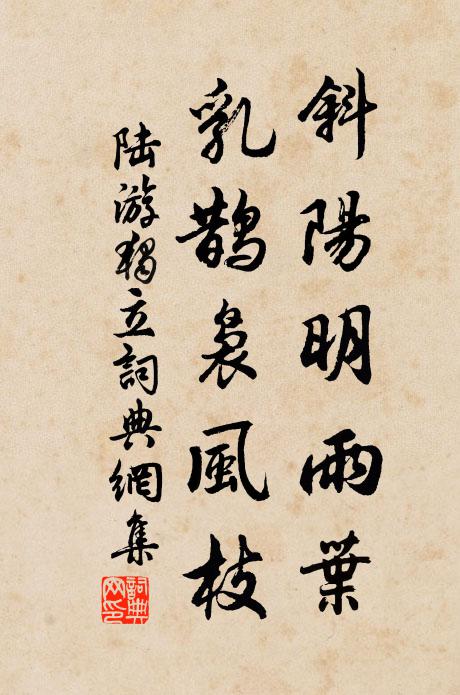 斜陽明雨葉
乳鵲裊風枝
陸游獨立詞典網集
詞典網印